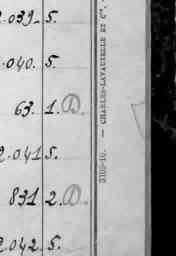 2.039. 5.
2.040. 5.
63. 1. D.
2.041 5.
831 2. D.
2.042 5.
3103-10. — CHARLES-LAVAUZELLE ET Cie.